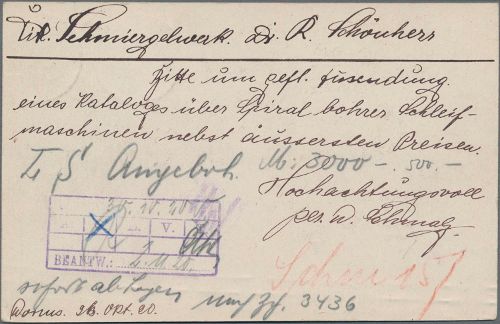 Tit. Schmirgelwerk. Dr. R. Schönherr
Bitte um gefl. Zusendung
eines Kataloges über Spiral bohrer Schleif-
maschinen nebst äussersten Preisen.
Angebot. M: 3000.- 500.-
Hochachtungsvoll
per. W. Schmalz.
A. V.
BEANTW.: 2.11.20.
Schm 157
sofort ablegen nach Zg. 3436
Worms. 26. Okt. 20.